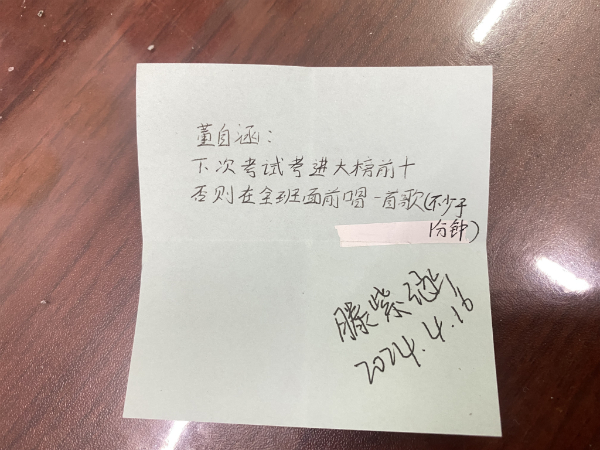 董自涵：
下次考试考进大榜前十
否则在全班面前唱一首歌(不少于
1分钟)
滕紫
2024.4.16